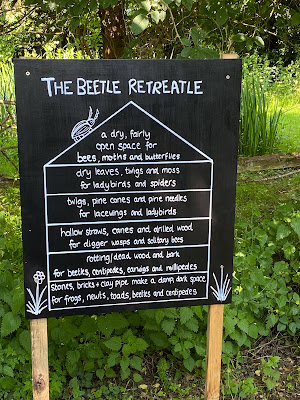 THE BEETLE RETREATLE
a dry, fairly
open space for
bees, moths and butterflies
dry leaves, twigs and moss
for ladybirds and spiders
twigs, pine canes and pine needles
for lacewings and ladybirds
hollow straws, canes and drilled wood
for digger wasps and solitary bees
rotting/dead wood and bark
for beetles, centipedes, earwigs and millipedes
Stones, bricks + clay pipe make a damp, dark space
for frogs, newts, toads, beetles and centipedes